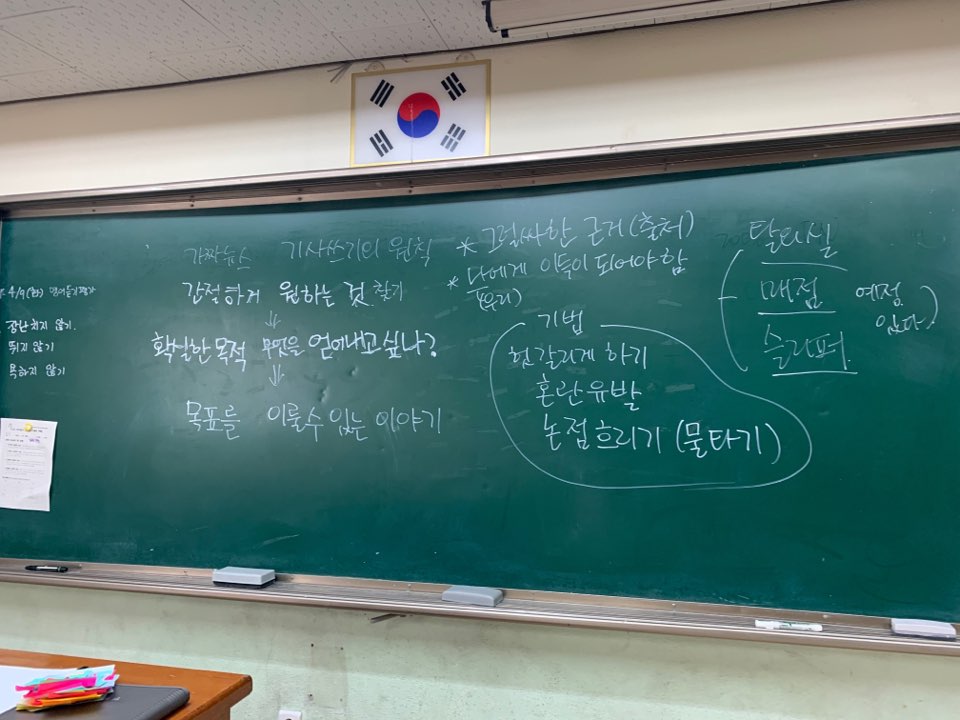 4/9(화)
장난치지 않기.
뛰지 않기
욕하지 않기
가짜뉴스 기사쓰기의 원칙
간절하게 원하는 것 찾기
↓
확실한 목적 무엇을 얻어내고 싶나?
↓
목표를 이룰수 있는 이야기
* 그럴싸한 근거(출처)
* 나에게 이득이 되어야 함
(우리)
기법
헛갈리게 하기
혼란유발
논점흐리기 (물타기)
탈의실
매점
슬리퍼
예정
있다.